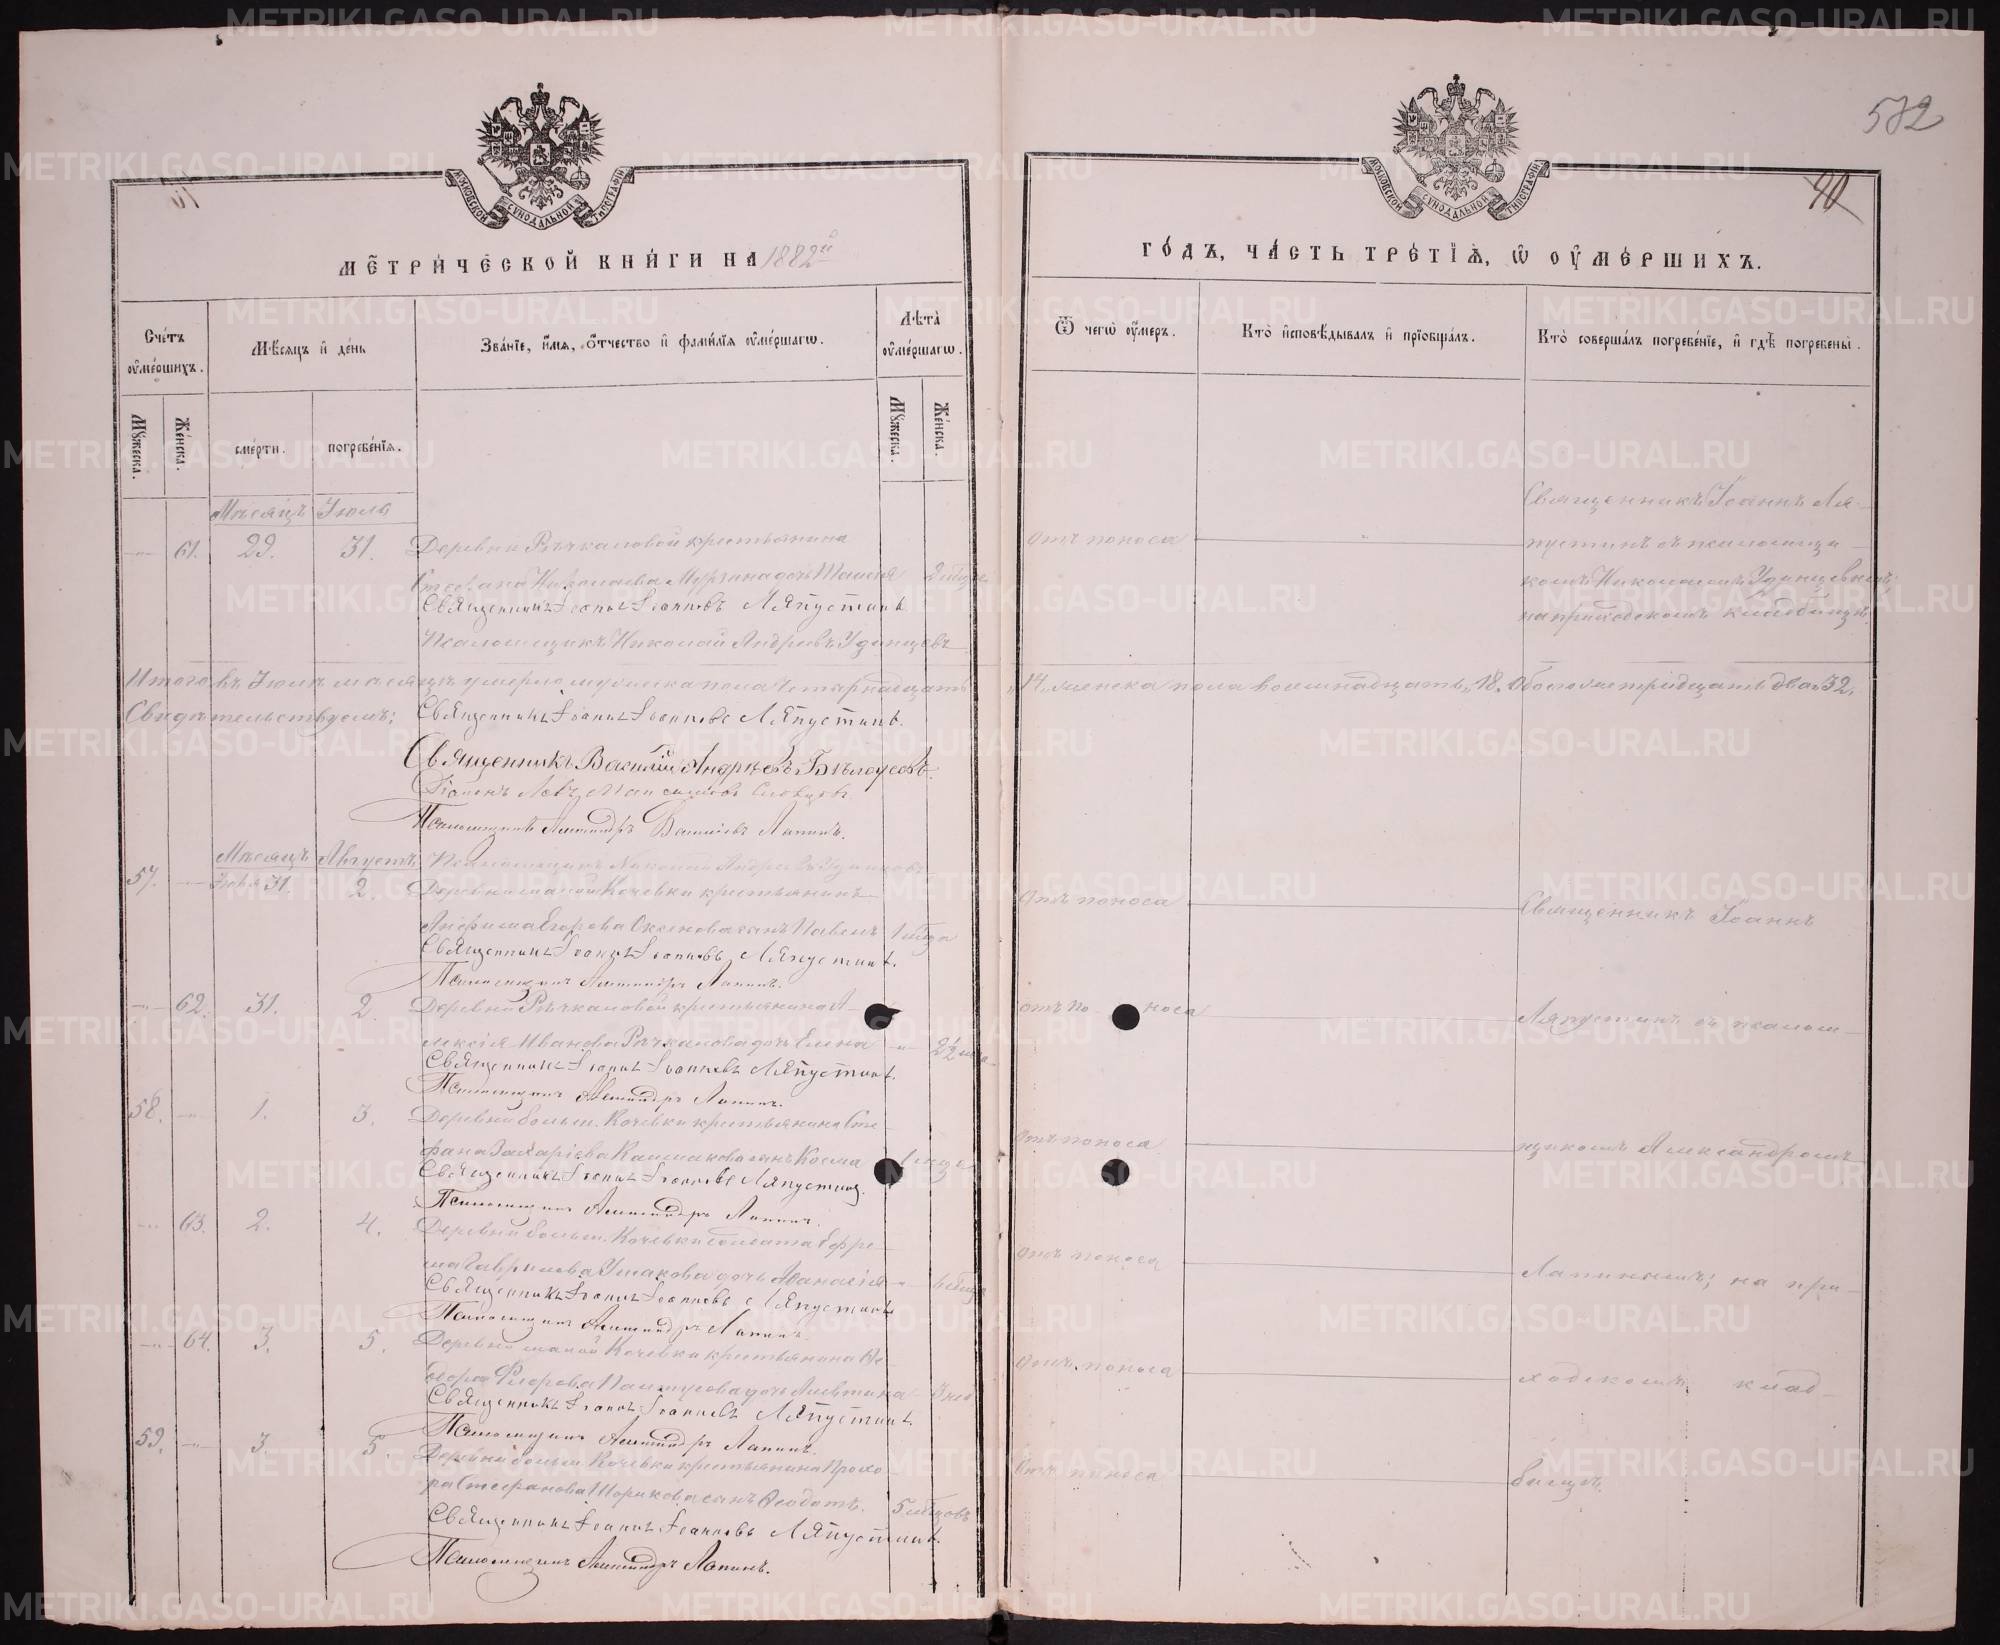 572
40
МОСКОВСКОЙ СѴНОДАЛЬНОЙ ТИПОГРАФІИ
МЕТРИЧЕСКОЙ КНИГИ НА 1882й
Счетъ оумершихъ.
Мѣсяцъ и день
Званіе, имя, отчество и фамилія оумершагѡ.
Лѣта оумершагѡ.
Мужеска.
Женска.
смерти.
погребенія.
Мужеска.
Женска.
Мѣсяцъ Іюль
61. 29. 31. Деревни Рѣчкаловой крестьянина
Стефана Николаева Мурзина дочь Таисія
Священникъ Іоаннъ Іоанновъ Ляпустинъ
Псаломщикъ Николай Андреевъ Удинцевъ
Итого въ Іюлѣ месяцѣ умерло мужеска пола четырнадцать
Свидѣтельствуемъ: Священникъ Іоаннъ Іоанновъ Ляпустинъ.
Священникъ Василій Андреевъ Бѣлоусовъ.
Діаконъ Левъ Словцовъ
Псаломщикъ Александръ Васильевъ Лапинъ.
Псаломщикъ Николай Андреевъ Удинцевъ
Мѣсяцъ Августъ
57. Іюля 31. 2. Деревни малой Кочевки крестьянина
Анфима Егорова сынъ Павелъ
Священникъ Іоаннъ Іоанновъ Ляпустинъ.
Псаломщикъ Александръ Лапинъ.
62. 31. 2. Деревни Рѣчкаловой крестьянина А-
лексія Иванова Рѣчкалова дочь Елена 2½
Священникъ Іоаннъ Іоанновъ Ляпустинъ.
Псаломщикъ Александръ Лапинъ.
58. 1. 3. Деревни больш. Кочевки крестьянина Сте-
фана Захаріева сынъ Косма
Священникъ Іоаннъ Іоанновъ Ляпустинъ.
Псаломщикъ Александръ Лапинъ.
63. 2. 4. Деревни больш. Кочевки солдата Ефре-
ма Гаврилова Ушакова дочь Аѳанасія
Священникъ Іоаннъ Іоанновъ Ляпустинъ
Псаломщикъ Александръ Лапинъ.
64. 3. 5. Деревни малой Кочевки крестьянина Ѳе-
дора Флорова дочь
Священникъ Іоаннъ Іоанновъ Ляпустинъ.
Псаломщикъ Александръ Лапинъ.
59. 3. 5. Деревни больш. Кочевки крестьянина Прохо-
ра Стефанова Шорикова сынъ Ѳеодотъ. 5
Священникъ Іоаннъ Іоанновъ Ляпустинъ.
Псаломщикъ Александръ Лапинъ.
МОСКОВСКОЙ СѴНОДАЛЬНОЙ ТИПОГРАФІИ
ГОДЪ, ЧАСТЬ ТРЕТІЯ, Ѡ ОУМЕРШИХЪ.
Ѿ чегѡ оумеръ.
Кто исповѣдывалъ и пріобщалъ.
Кто совершалъ погребеніе, и гдѣ погребены.
Священникъ Іоаннъ Ля-
Отъ поноса
пустинъ съ псаломщи-
комъ Николаемъ Удинцевымъ
на приходскомъ кладбищѣ.
14. женска пола восемнадцать 18. Обоего же тридцать два 32.
Отъ поноса
Священникъ Іоаннъ
отъ поноса
Ляпустинъ съ псалом-
Отъ поноса
щикомъ Александромъ
Отъ поноса
Лапинымъ; на при-
Отъ поноса
ходскомъ клад-
Отъ поноса
бищѣ.
METRIKI.GASO-URAL.RU